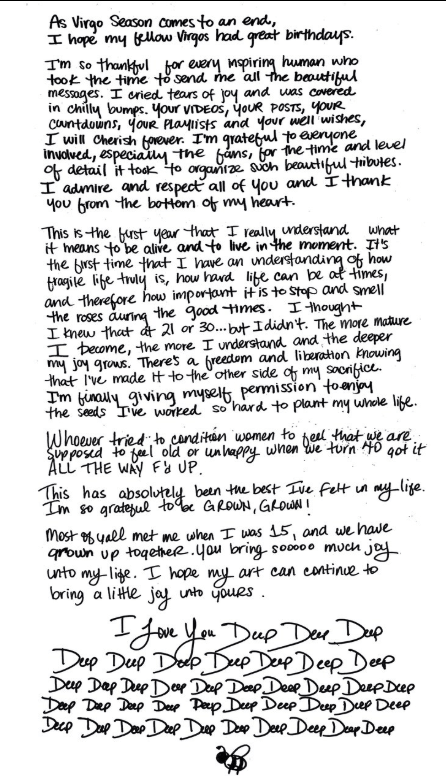 As Virgo Season comes to an end,
I hope my fellow Virgos had great birthdays.
I'm so thankful for every inspiring human who
took the time to send me all the beautiful
messages. I cried tears of joy and was covered
in chilly bumps. Your VIDEOS, YOUR POSTS, YOUR
Countdowns, YOUR PLAYLISTS and Your well wishes,
I will Cherish forever. I'm grateful to everyone
involved, especially the fans, for the time and level
of detail it took to organize such beautiful tributes.
I admire and respect all of you and I thank
you from the bottom of my heart.
This is the first year that I really understand what
it means to be alive and to live in the moment. It's
the first time that I have an understanding of how
fragile life truly is, how hard life can be at times,
and therefore how important it is to stop and smell
the roses during the good times. I thought
I knew that at 21 or 30...but I didn't. The more mature
I become, the more I understand and the deeper
my joy grows. There's a freedom and liberation knowing
that I've made it to the other side of my sacrifice.
I'm finally giving myself permission to enjoy
the seeds I've worked so hard to plant my whole life.
Whoever tried to condition women to feel that we are
supposed to feel old or unhappy when we turn 40 got it
ALL THE WAY F'd UP.
This has absolutely been the best I've felt in my life.
I'm so grateful to be GROWN, GROWN!
Most of yall met me when I was 15, and we have
grown up together. You bring sooooo much joy
unto my life. I hope my art can continue to
bring a little joy unto yours.
I Love You Deep Deep Deep
Deep Deep Deep Deep Deep Deep Deep
Deep Deep Deep Deep Deep Deep Deep Deep Deep Deep
Deep Deep Deep Deep Deep Deep Deep Deep Deep Deep
Deep Deep Deep Deep Deep Deep Deep Deep Deep Deep
B